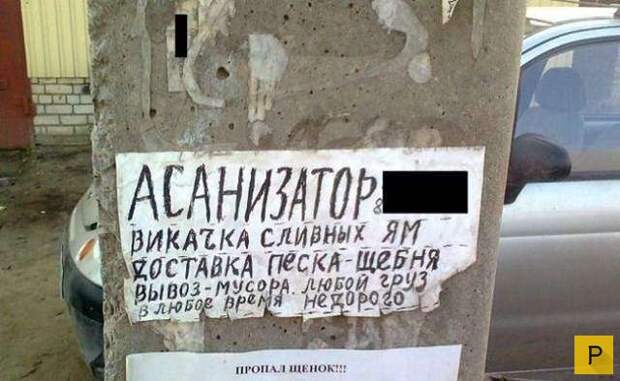 АСАНИЗАТОР 8
ВИКАЧКА СЛИВНЫХ ЯМ
ДОСТАВКА ПЕСКА-ЩЕБНЯ
ВЫВОЗ-МУСОРА. ЛЮБОЙ ГРУЗ
В ЛЮБОЕ ВРЕМЯ НЕДОРОГО
ПРОПАЛ ЩЕНОК!!!
P